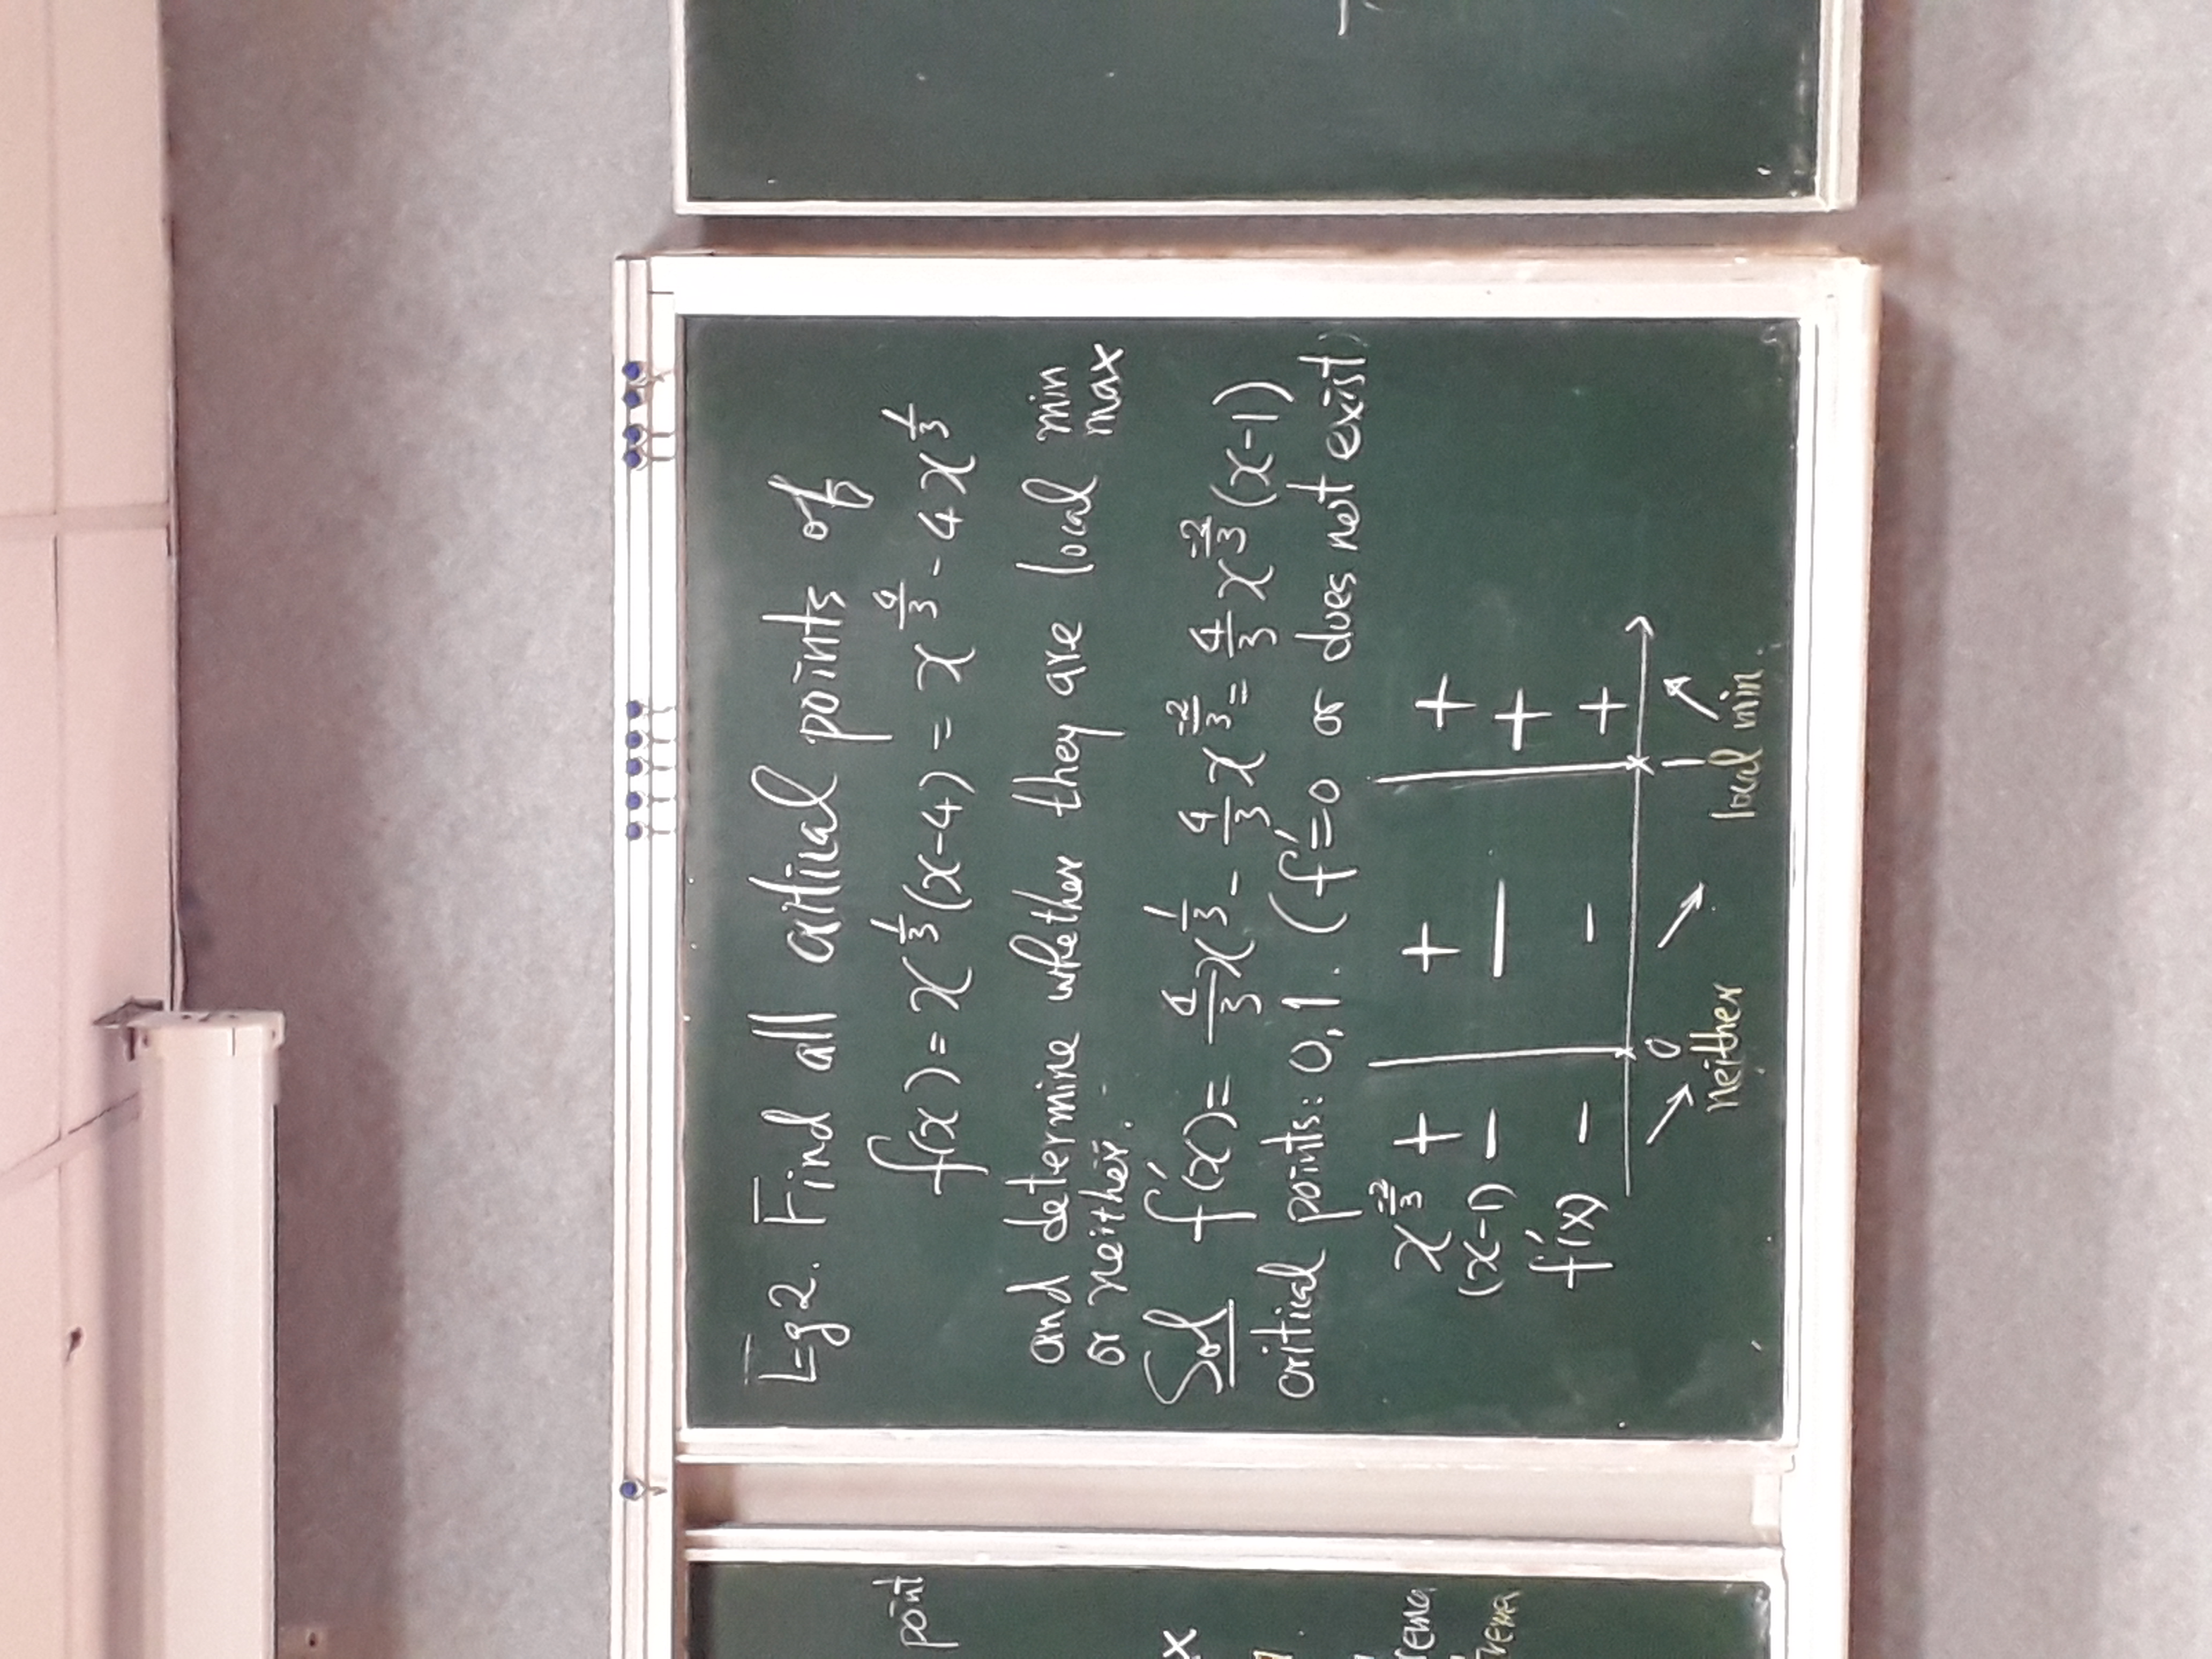 Eg 2. Find all critical points of
f(x) = x^{1/3}(x-4) = x^{4/3} - 4x^{1/3}
and determine whether they are local min
max
or neither.
Sol f'(x) = 4/3 x^{1/3} - 4/3 x^{-2/3} = 4/3 x^{-2/3}(x-1)
critical points: 0, 1. (f'=0 or does not exist)
x^{-2/3} + + +
(x-1) - - +
f'(x) - - +
0 1
neither local min.
point
x
rema
rema